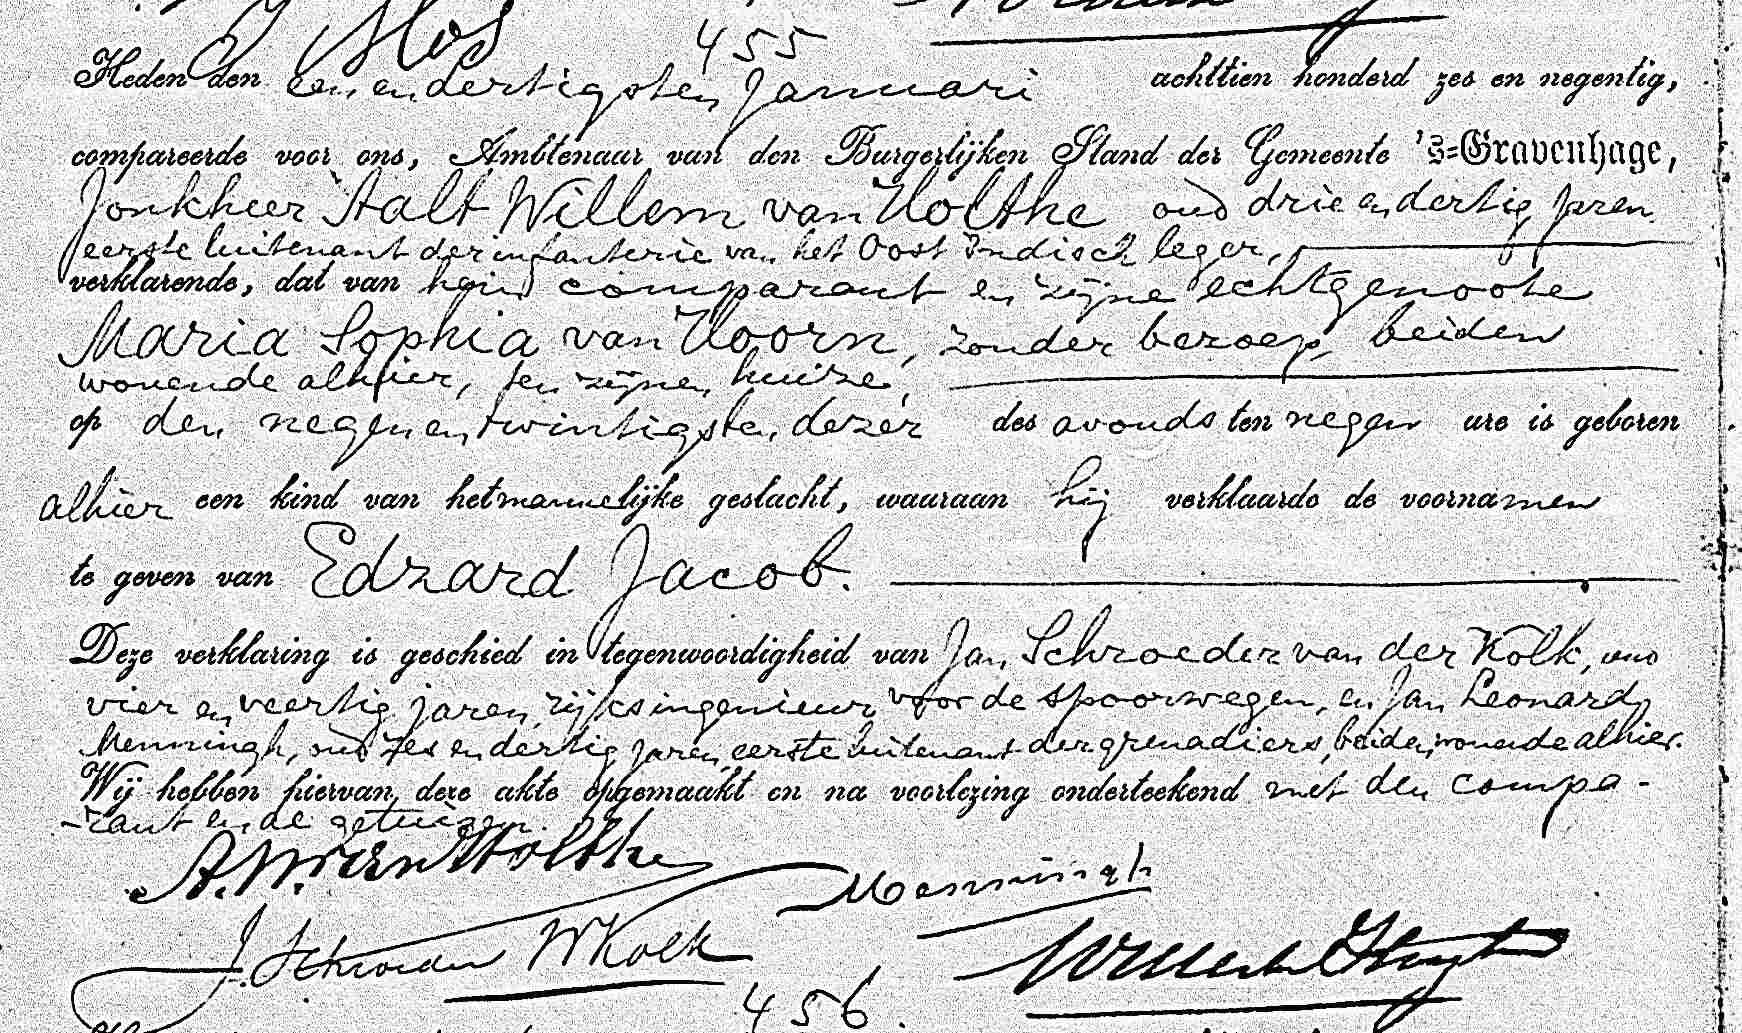 455
Heden den een en dertigsten Januari achttien honderd zes en negentig,
compareerde voor ons, Ambtenaar van den Burgerlijken Stand der Gemeente 's=Gravenhage,
Jonkheer Aalt Willem van Holthe oud drie en dertig jaren
eerste luitenant der infanterie van het Oost Indisch leger,
verklarende, dat van hem comparant en zijne echtgenoote
Maria Sophia van Hoorn, zonder beroep, beiden
wonende alhier, ten zijnen huize,
op den negen en twintigsten dezer des avonds ten negen ure is geboren
alhier een kind van het mannelijke geslacht, waaraan hij verklaarde de voornamen
te geven van Edzard Jacob.
Deze verklaring is geschied in tegenwoordigheid van Jan Schroeder van der Kolk, oud
vier en veertig jaren, rijksingenieur voor de spoorwegen, en Jan Leonard
Menningh, oud zes en dertig jaren, eerste luitenant der grenadiers, beiden wonende alhier.
Wij hebben hiervan deze akte opgemaakt en na voorlezing onderteekend met den compa-
-rant en de getuigen.
A. W. van Holthe Menningh
J. Schroeder VKolk
456.